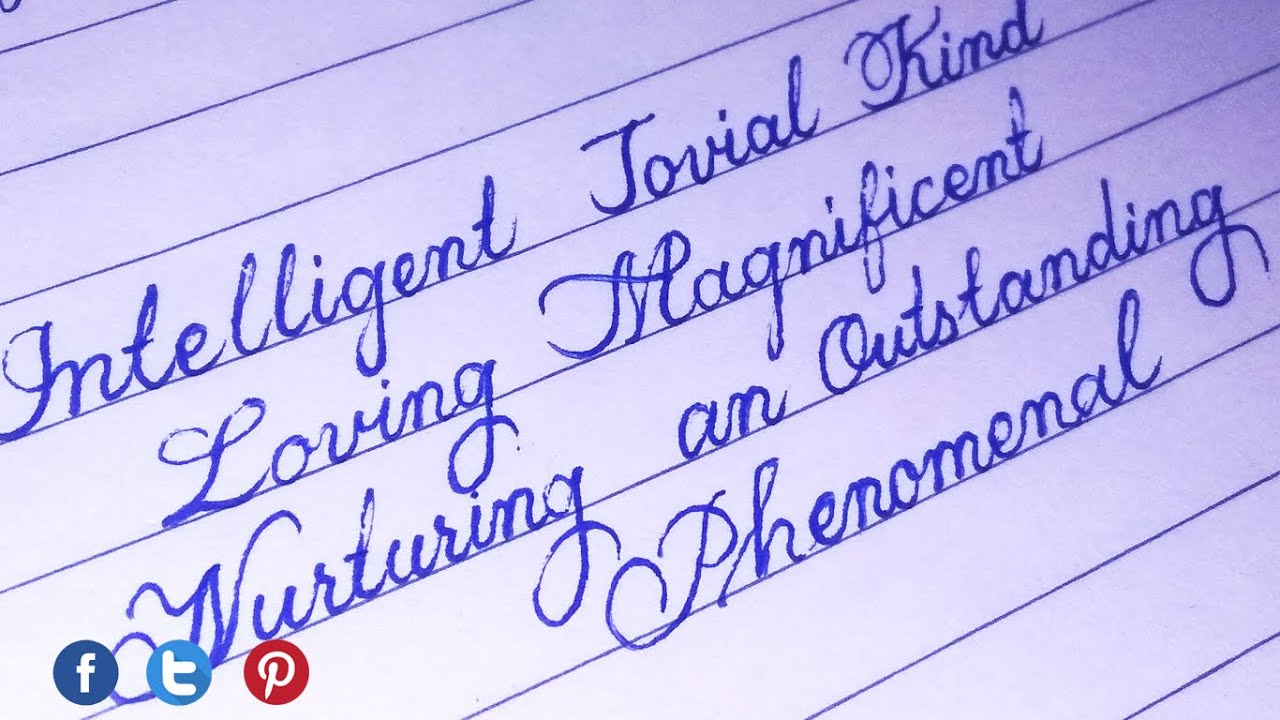 Intelligent Jovial Kind
Loving Magnificent
Nurturing an Outstanding
Phenomenal